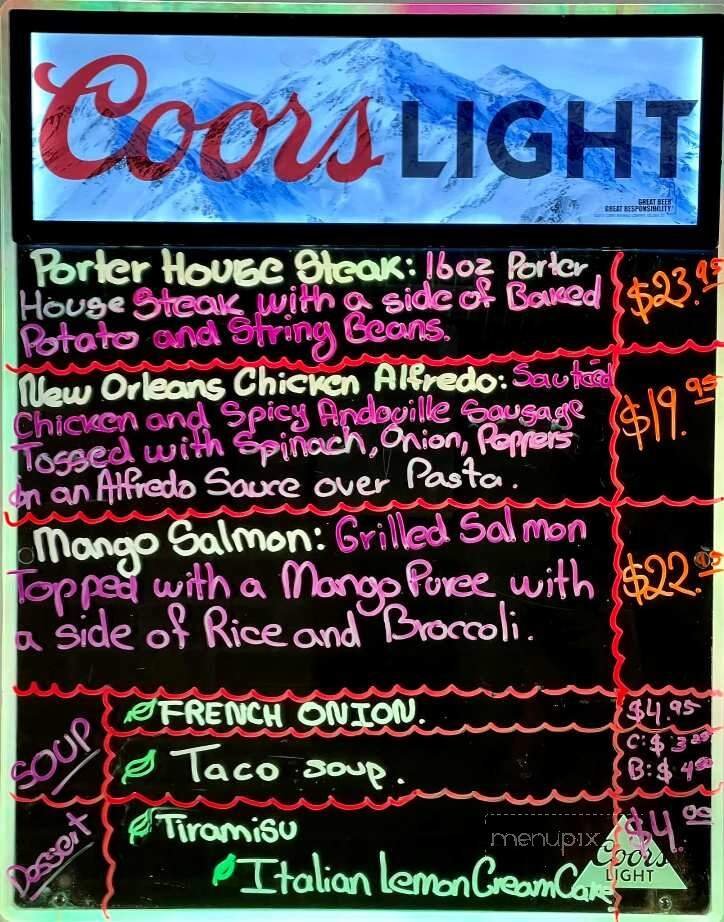 Coors LIGHT
GREAT BEER
GREAT RESPONSIBILITY.
Porter House Steak: 16oz Porter
House Steak with a side of Baked
Potato and String Beans.
$23.95
New Orleans Chicken Alfredo: Sautéed
Chicken and Spicy Andouille Sausage
Tossed with Spinach, Onion, Peppers
in an Alfredo Sauce over Pasta.
$19.95
Mango Salmon: Grilled Salmon
Topped with a Mango Puree with
a side of Rice and Broccoli.
$22.95
SOUP
FRENCH ONION. $4.95
Taco soup.
C:$3
B:$4
Dessert
Tiramisu
Italian Lemon Cream Cake
$4
menupix
Coors
LIGHT